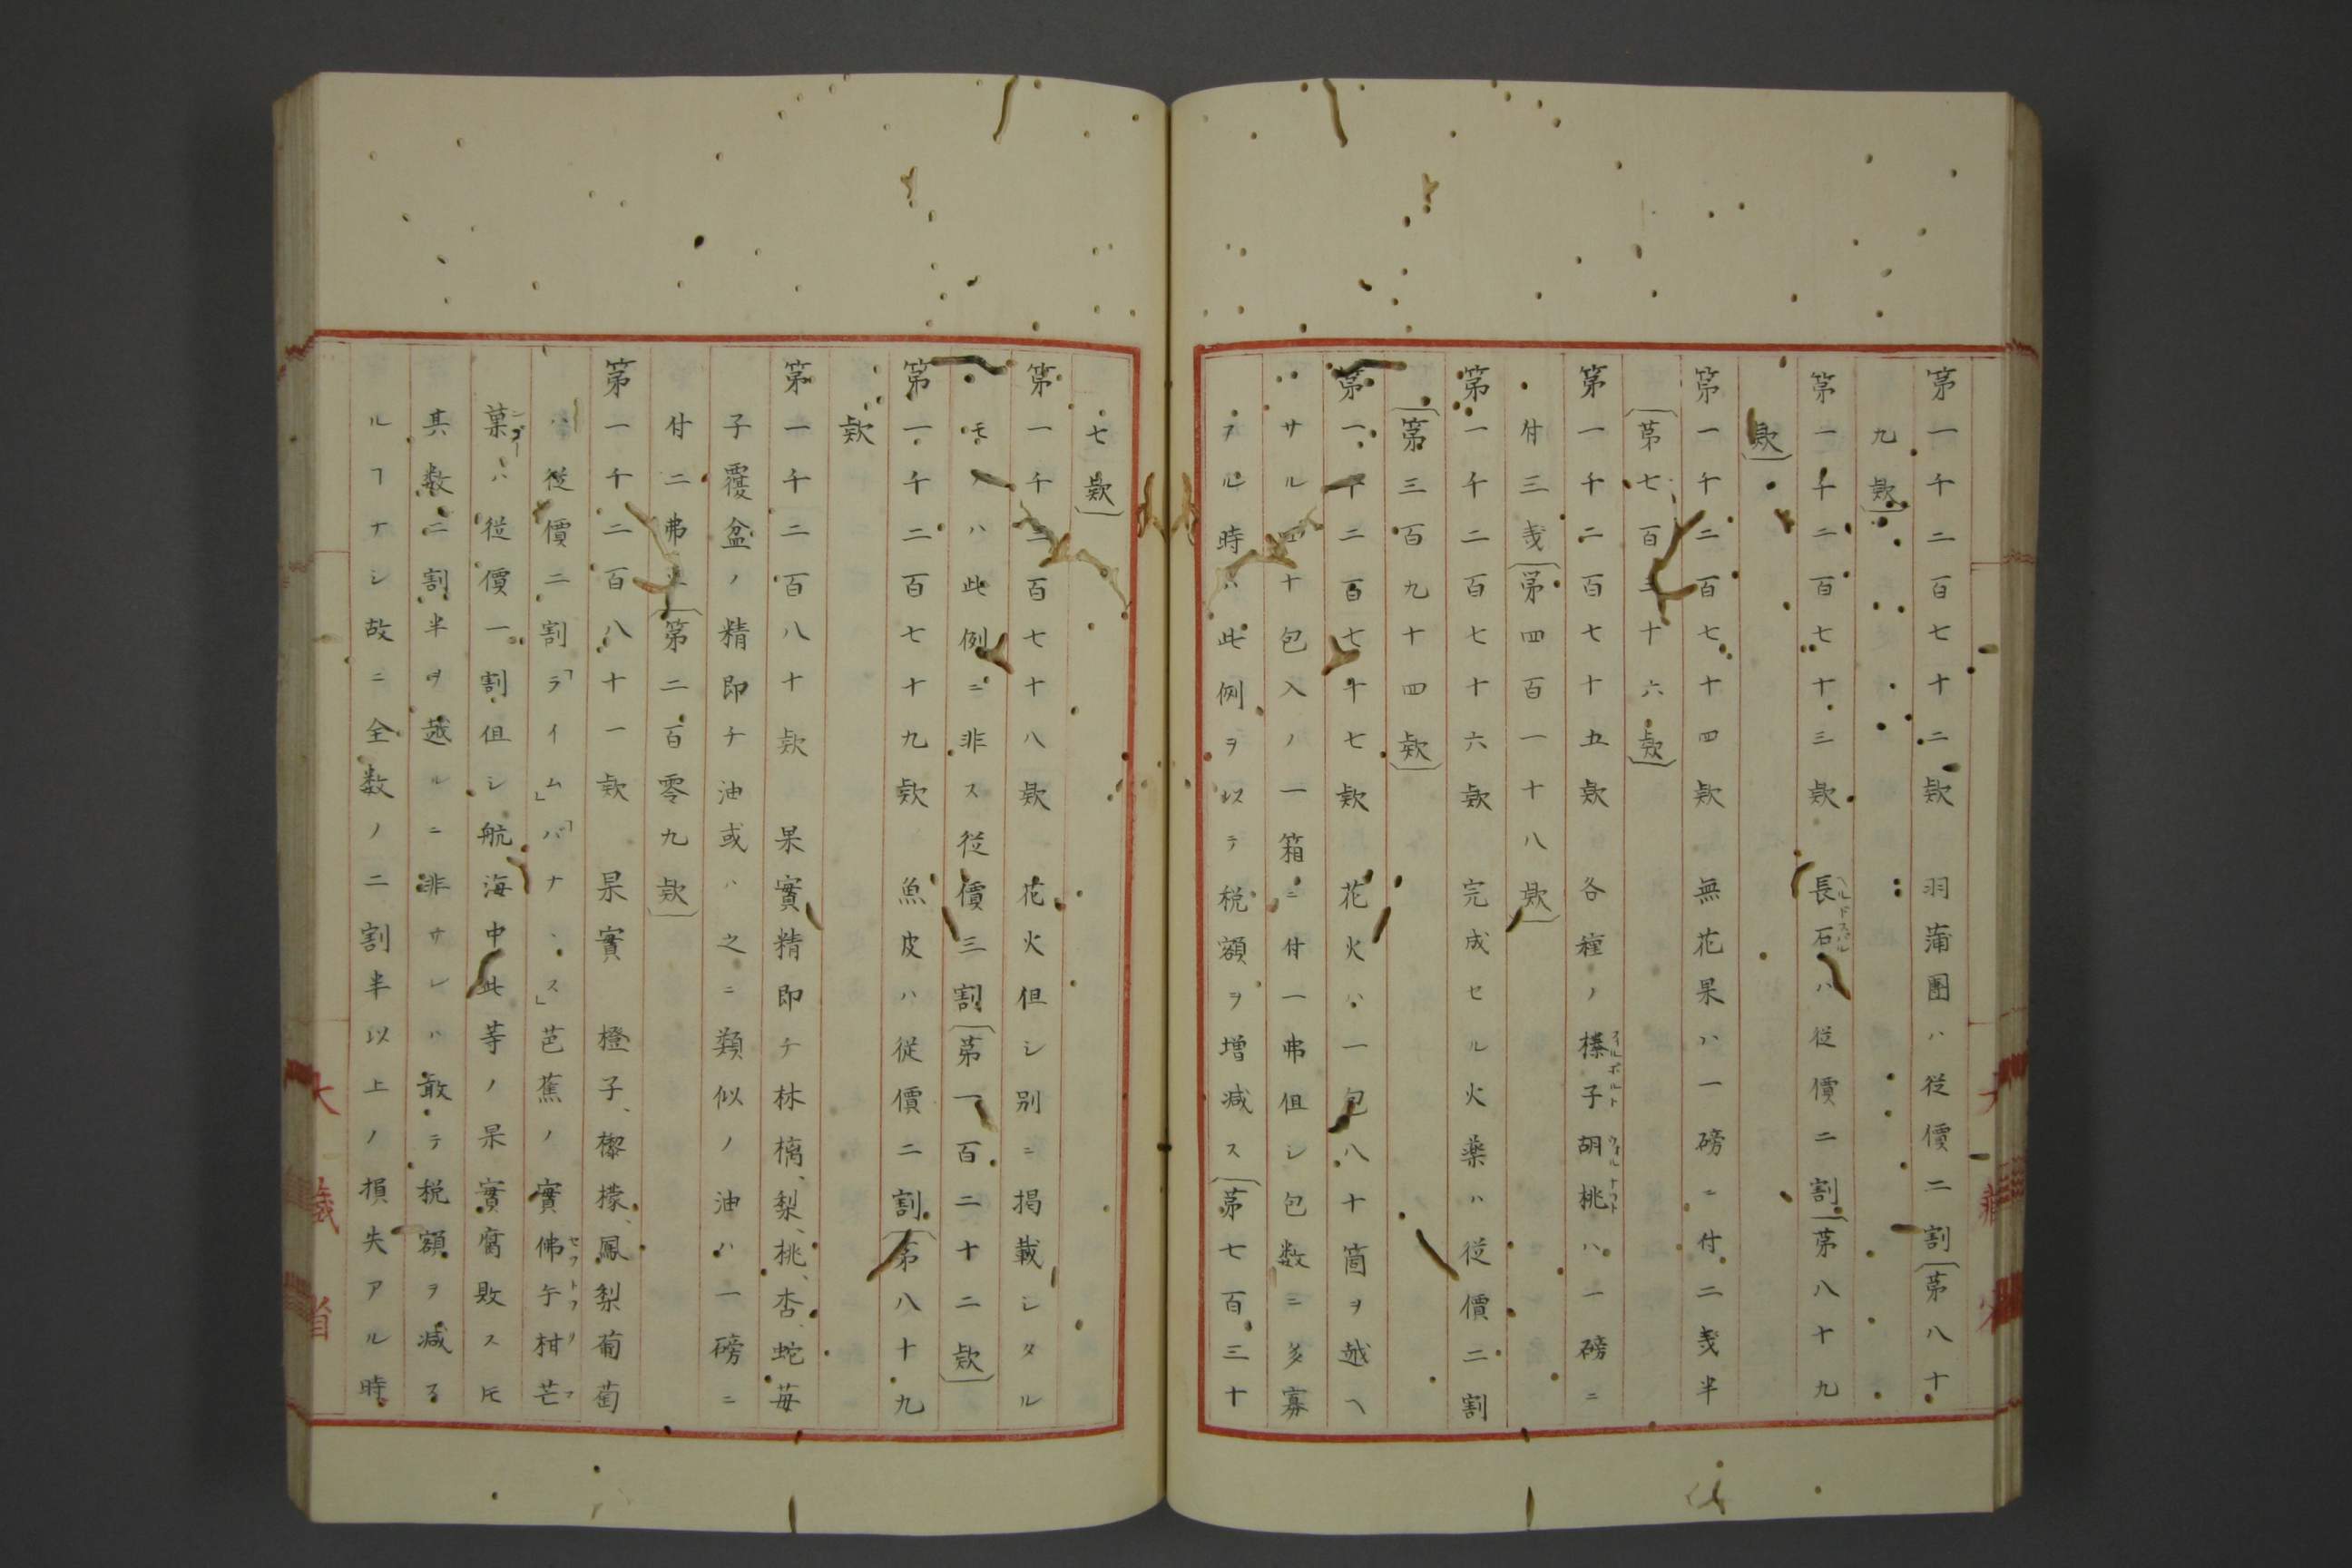 第一千二百七十二欵　羽蒲團ハ従價二割(第八十
九欵)
第一千二百七十三欵　長石ハ従價二割(第八十九
欵)
第一千二百七十四欵　無花果ハ一磅ニ付二戔半
(第七百三十六欵)
第一千二百七十五欵　各種ノ榛子胡桃ハ一磅ニ
付三戔(第四百一十八欵)
第一千二百七十六欵　完成セル火藥ハ従價二割
(第三百九十四欵)
第一千二百七十七欵　花火ハ一包八十箇ヲ越ヘ
サル四十包入ノ一箱ニ付一弗但シ包数ニ多寡
アル時ハ此例ヲ以テ税額ヲ増減ス(第七百三十
七欵)
第一千二百七十八欵　花火但シ別ニ掲載シタル
モノハ此例ニ非ス従價三割(第一百二十二欵)
第一千二百七十九欵　魚皮ハ従價二割(第八十九
欵
第一千二百八十欵　果實精即チ林檎、梨、桃、杏、蛇苺
子覆盆ノ精即チ油或ハ之ニ類似ノ油ハ一磅ニ
付二弗半(第二百零九欵)
第一千二百八十一欵　果實　橙子、檸檬、鳳梨葡萄
ハ従價二割「ライム」「バナヽス」芭蕉ノ實佛手柑芒
菓ハ従價一割但シ航海中此等ノ果實腐敗スト𪜈
其数二割半ヲ越ルニ非サレハ敢テ税額ヲ減る
ルヿナシ故ニ全数ノ二割半以上ノ損失アル時
大藏省